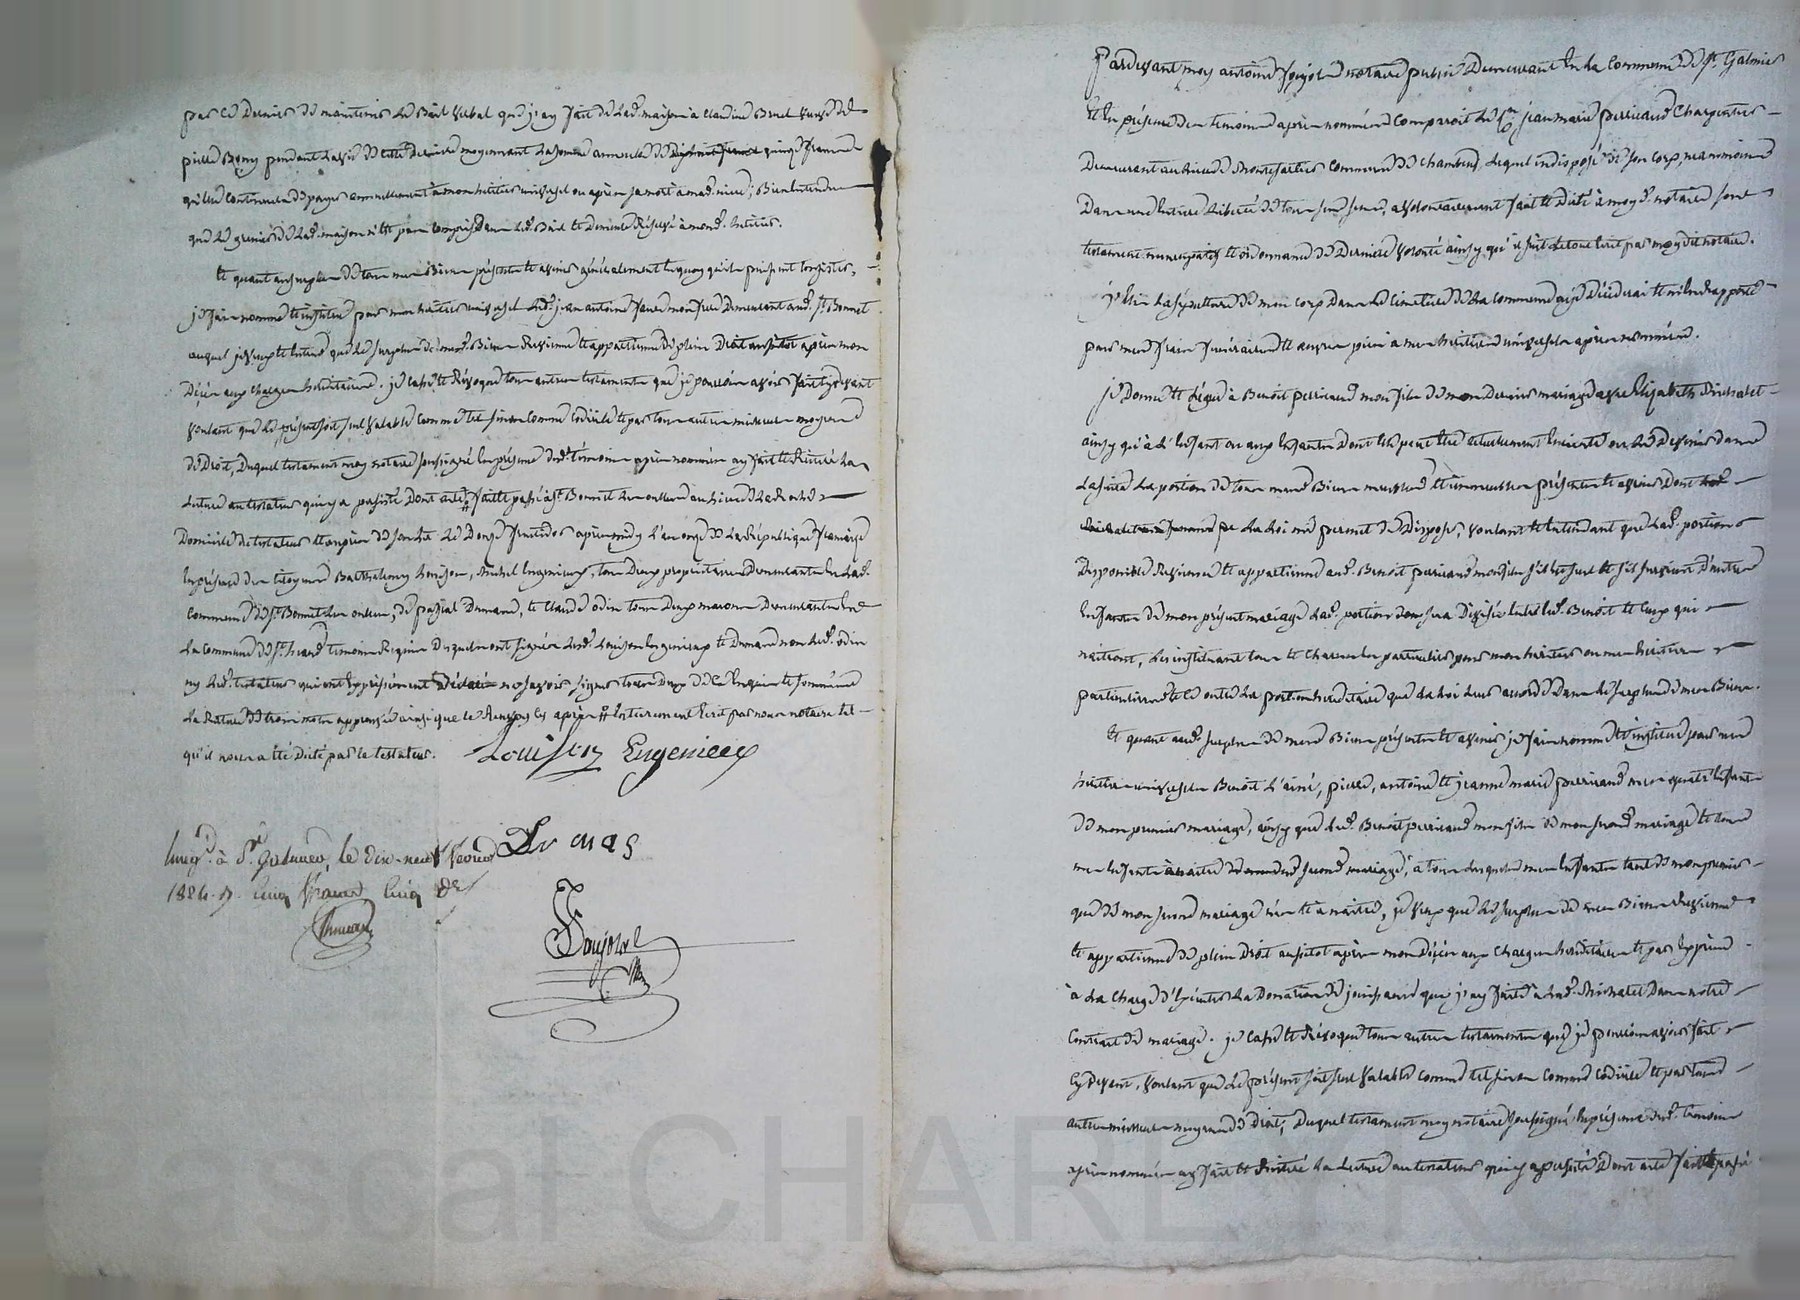 par ce dernier de maintenir le Bail verbal que j'ay fait de lad. maison à Claudine Brunel veuve de
pierre Remy pendant la vie de cette derniere moyennant la somme annuelle de quinze francs
qu'elle continuera de payer annuellement à mon héritier universel ou après sa mort à mad. niece; Bien entendu
que le grenier de lad. maison n'est pas compris dans led. Bail et demeure Réservé à mond. héritier.
Et quant au surplus de tous mes Biens présents et avenir généralement en quoy qu'ils puissent consister,
je fais nomme et institue pour mon héritier universel led. jean antoine faure mon frere demeurant aud. St. Bonnet
auquel je veux et entens que le surplus de mesd. Biens Revienne et appartienne de plein Droit aussitôt après mon
Décès aux charges héréditaires. je casse et Révoque tous autres testaments que je pourrois avoir fait cy devant
voulant que le présent soit seul valable comme tel sinon comme codicile et par tous autres meilleurs moyens
de Droit, Duquel testament moy notaire soussigné en présence desd. témoins après nommés ay fait et Réitéré la
lecture au testateur qui y a persisté dont acte, fait et passé à St. Bonnet les oulles au lieu de la Roche
Domicile du testateur et auprès de son lit le Douze Ventôse après midy l'an onze de la République française
En présence des citoyens Barthelemy Louison, Michel Engenieux, tous Deux propriétaires demeurants en lad.
commune de St. Bonnet les oulles, de pascal Dumas, et Claude odin tous Deux maçons demeurants en
la commune de St. heand témoins Requis Desquels ont signé lesd. Louison Engenieux et Dumas non led. odin
ny led. testateur qui ont expressément déclaré ne savoir signer tous deux de ce Enquis et sommés
la Rature de trois mots approuvée ainsi que le Renvoy cy après # Entierement Ecrit par nous notaire tel
qu'il nous a été Dicté par le testateur. Louison Engenieux
Dumas
Enreg.é à St. Galmier, le dix-neuf Ventôse
18
cinq francs cinq
Soujol
Pardevant moy antoine Soujol notaire public Demeurant En la Commune de St. Galmier
Et En présence des temoins après nommés comparoit le Sr. jean marie perricaud Charpentier
Demeurant au lieu de commune de Chambœuf, Lequel indisposé de son corps, neanmoins
Dans une Entiere Liberté de tous ses sens, a volontairement fait et Dicté à moy d. notaire son
testament nuncupatif et ordonnance de Derniere volonté ainsy qu'il suit Le tout Ecrit par moy dit notaire.
J'Elis la sépulture de mon corps Dans le cimetiere de la commune où je Décèderai et m'En Rapporte
pour mes frais funéraires et œuvres pies à mes héritiers universels après nommés.
je Donne et Légue à Benoit perricaud mon fils de mon Dernier mariage avec Elizabeth Michalet
ainsy qu'à l'Enfant ou aux Enfants Dont Elle peut être actuellement Enceinte ou le Devenir dans
la suite La portion de tous mesd. Biens meubles et immeubles présents et avenir Dont
La Loi me permet de Disposer, voulant et Entendant que lad. portion
Disponible Revienne et appartienne aud. Benoit perricaud mon fils s'il est seul et s'il survient d'autres
Enfants de mon présent mariage lad. portion sera Divisée Entre led. Benoit et ceux qui
naitront, Les instituant tous et chacun En particulier pour mes héritiers ou mes héritieres
particuliers et ce outre La portion héréditaire que la Loi leur accorde Dans le surplus de mes Biens.
Et quant aud. surplus de mesd. Biens présents et avenir je fais nomme et institue pour mes
héritiers universels Benoit l'ainé, pierre, antoine et jeanne marie perricaud mes quatre Enfants
de mon premier mariage, ainsy que led. Benoit perricaud mon fils de mon second mariage et tous
mes Enfants à naitre de mond. second mariage, à tous lesquels mes Enfants tant de mon premier
que de mon second mariage nés et à naitre, je veux que le surplus de mes Biens Revienne
et appartienne de plein Droit aussitot après mon Décès aux charges héréditaires et par Exprès
à La charge d'Exécuter La Donation de jouissance que j'ay faite à lad. Michalet Dans notre
Contrat de mariage. je casse et Révoque tous autres testaments que je pourrois avoir fait
Cy Devant, voulant que le présent soit seul valable comme tel sinon comme codicile et par tous
autres meilleurs moyens de Droit, Duquel testament moy notaire soussigné En présence desd. témoins
après nommés ay fait et Réitéré La Lecture au testateur qui y a persisté Dont acte fait et passé
ascal CHAREYRON